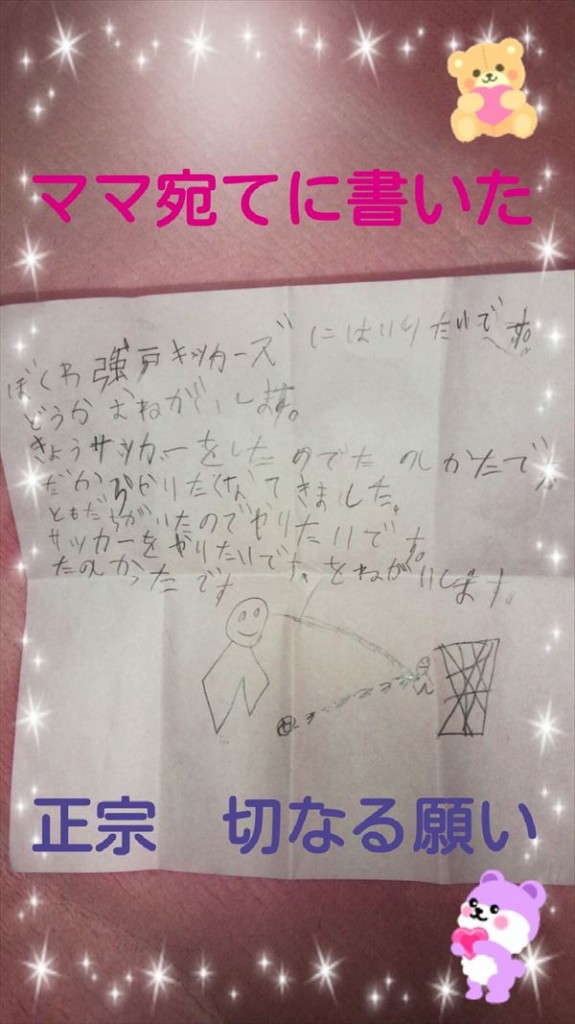 ママ宛てに書いた
ぼくわ強戸キッカーズにはいりたいです。
どうかおねがいします。
きょうサッカーをしたのでたのしかたで
だからやりたくなてきました。
ともだちがいたのでやりたいです。
サッカーをやりたいです。
たのしかったです をねがいします。
正宗　切なる願い